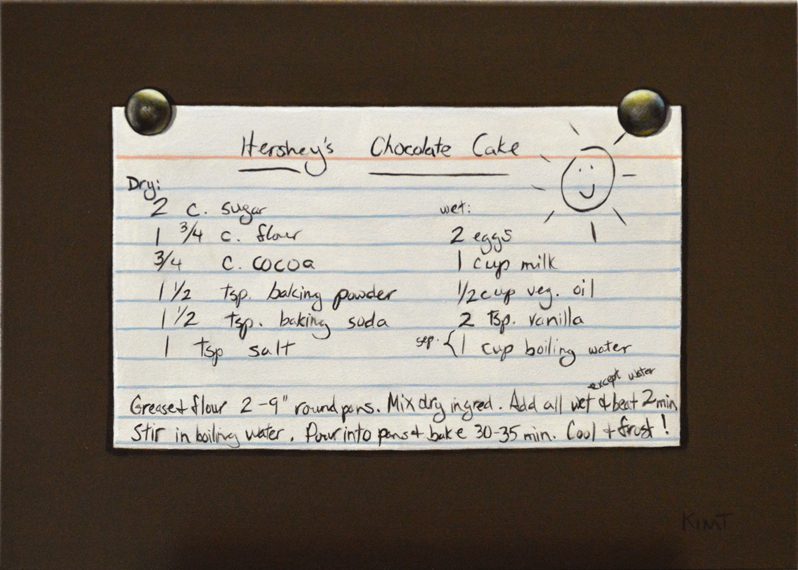 Hershey's Chocolate Cake
Dry:
2 c. sugar
1 3/4 c. flour
3/4 c. cocoa
1 1/2 tsp. baking powder
1 1/2 tsp. baking soda
1 tsp salt
wet:
2 eggs
1 cup milk
1/2 cup veg. oil
2 tsp. vanilla
sep. { 1 cup boiling water
except water
Grease & flour 2-9" round pans. Mix dry ingred. Add all wet & beat 2 min
Stir in boiling water. Pour into pans & bake 30-35 min. Cool & frost!
KIMT